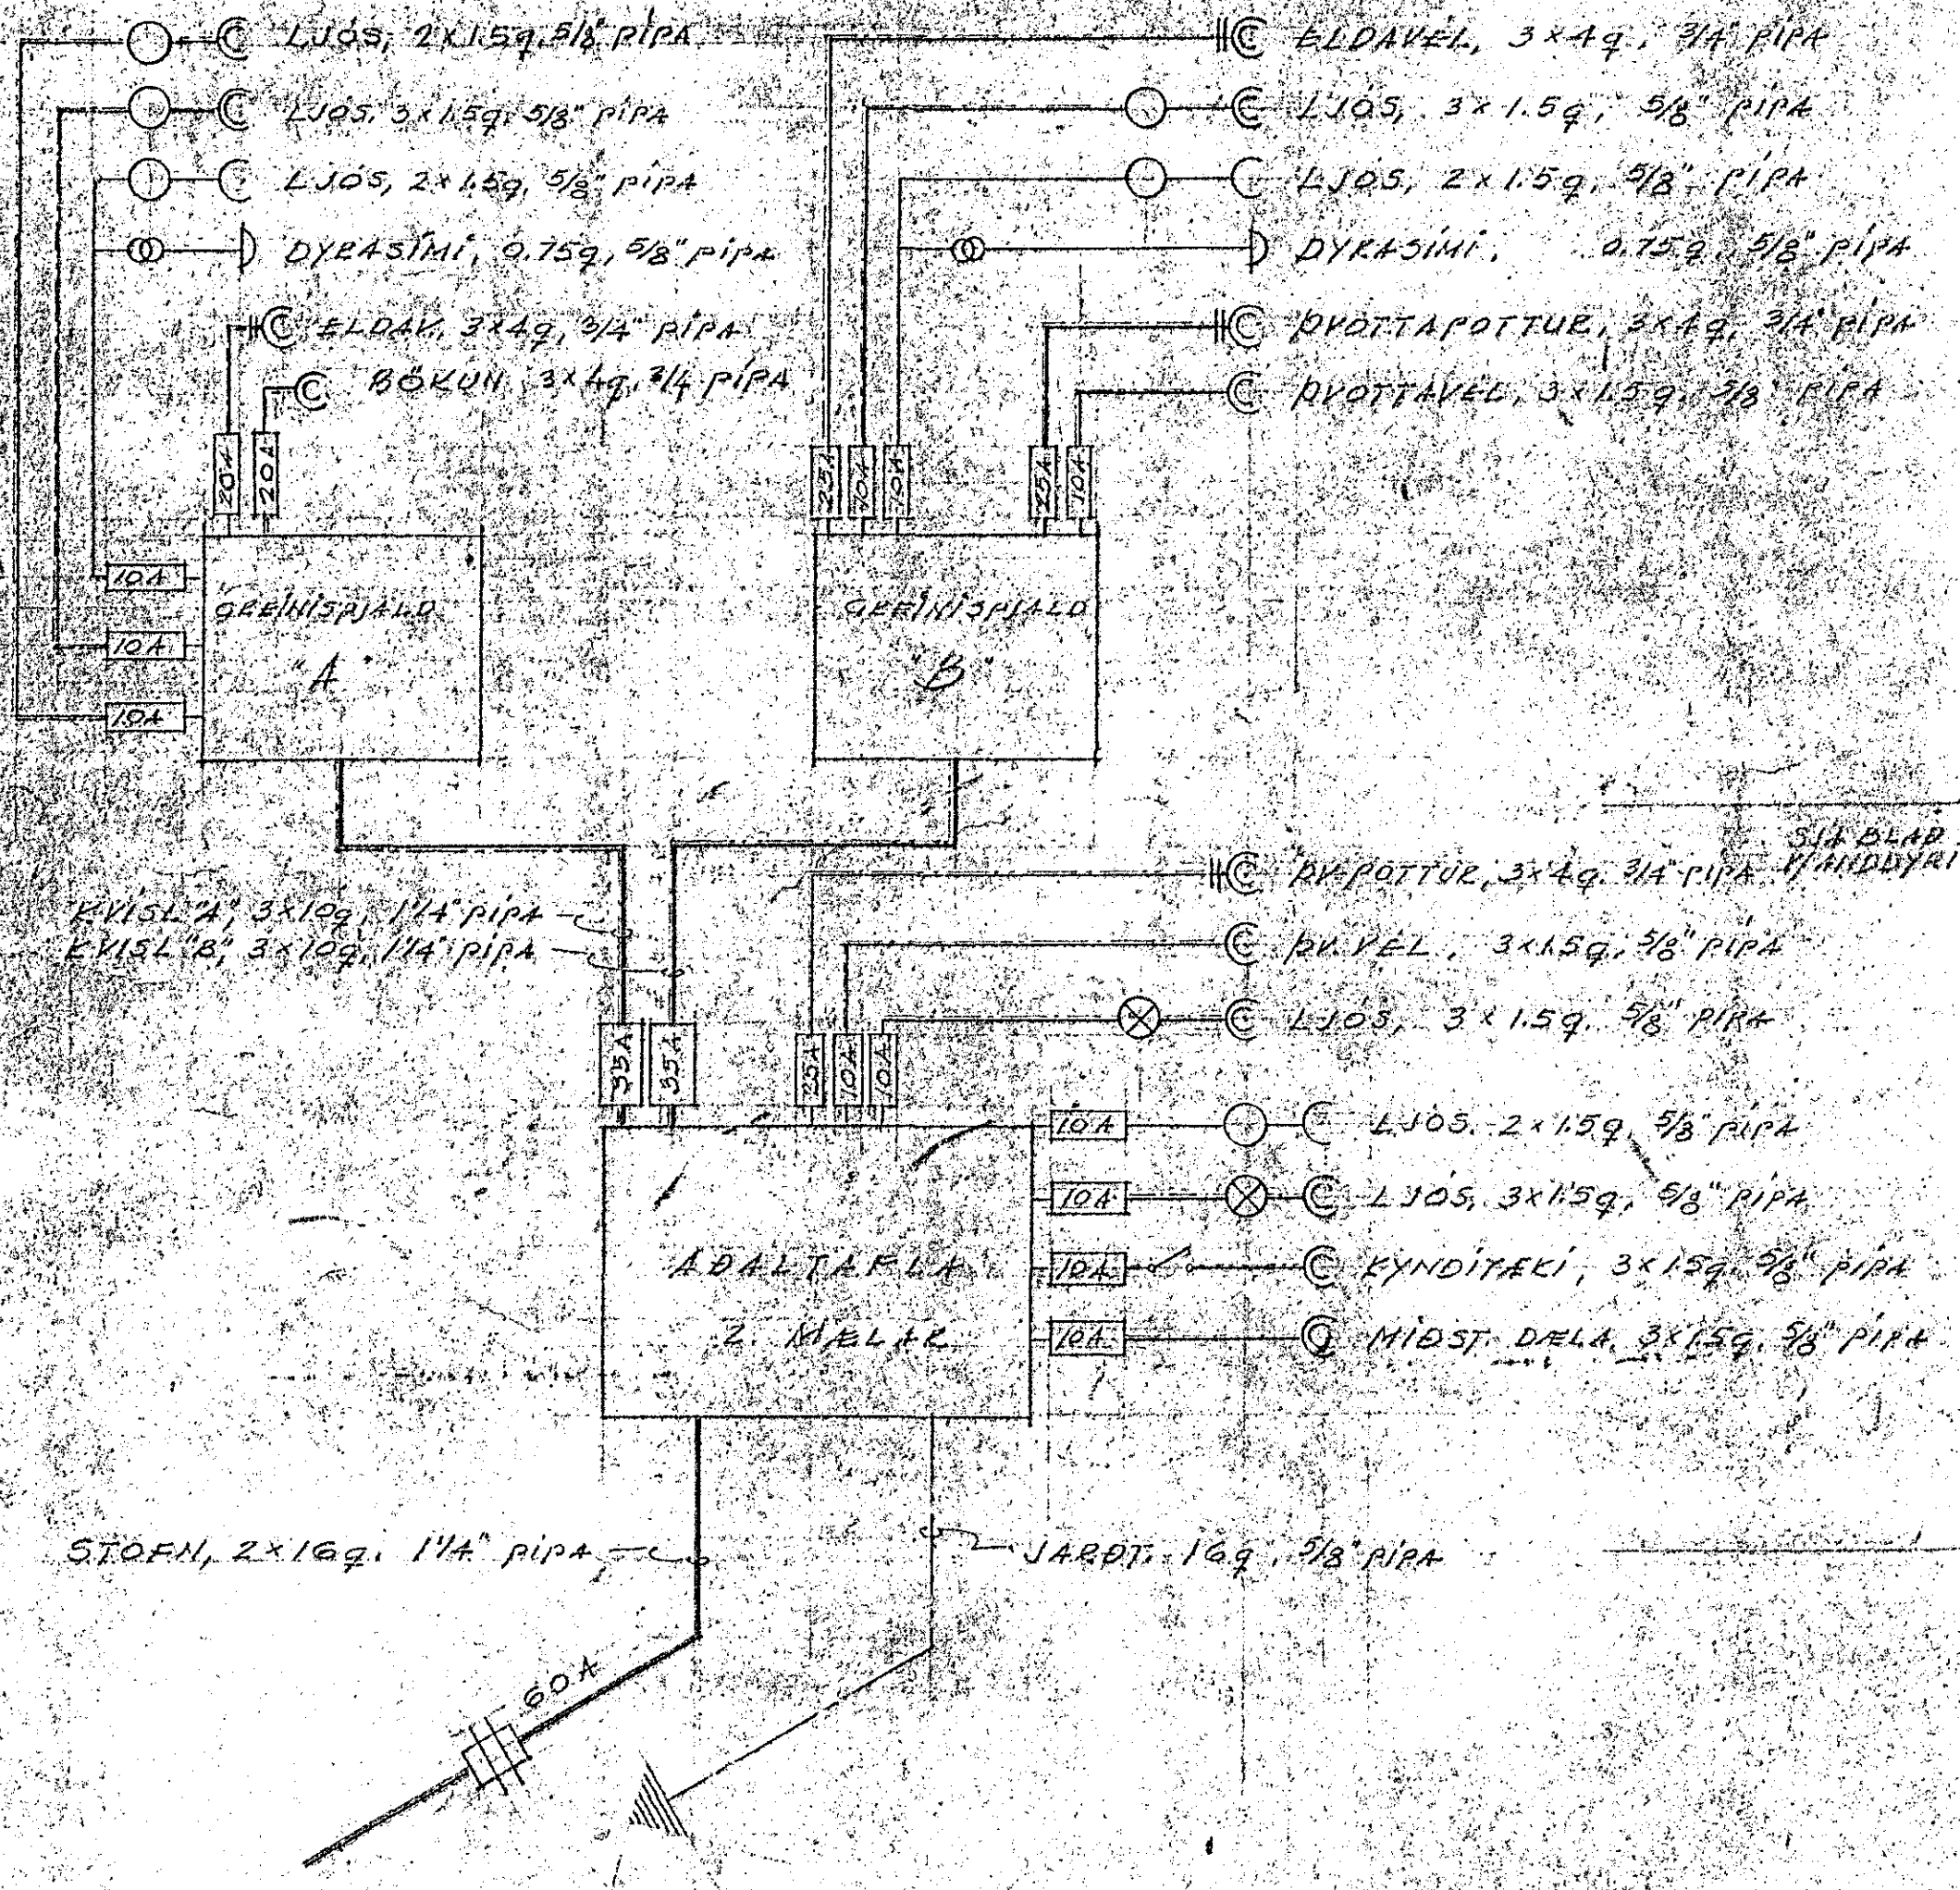 LJÓS, 2x1.5q, 5/8" PÍPA
LJÓS, 3x1.5q, 5/8" PÍPA
LJÓS, 2x1.5q, 5/8" PÍPA
DYRASÍMI, 0.75q, 5/8" PÍPA
ELDAV. 3x4q, 3/4" PÍPA
BÖKUN 3x4q, 3/4 PÍPA
20A
20A
10A
10A
10A
GREINISPJALD
"A"
ELDAVÉL, 3x4q, 3/4" PÍPA
LJÓS, 3x1.5q, 5/8" PÍPA
LJÓS, 2x1.5q, 5/8" PÍPA
DYRASÍMI, 0.75q, 5/8" PÍPA
ÞVOTTAPOTTUR, 3x4q, 3/4" PÍPA
ÞVOTTAVÉL, 3x1.5q, 5/8" PÍPA
25A
10A
10A
25A
10A
GREINISPJALD
"B"
SJÁ BLAÐ
V/ANDDYRI
KVÍSL "A", 3x10q, 1 1/4" PÍPA
KVÍSL "B", 3x10q, 1 1/4" PÍPA
ÞV-POTTUR, 3x4q. 3/4" PÍPA
ÞV.VÉL, 3x1.5q, 5/8" PÍPA
LJÓS, 3x1.5q. 5/8" PÍPA
35A
35A
25A
10A
10A
10A
LJÓS. 2x1.5q, 5/8" PÍPA
10A
LJÓS, 3x1.5q, 5/8" PÍPA
10A
KYNDITÆKI, 3x1.5q, 5/8" PÍPA
10A
MIÐST. DÆLA, 3x1.5q, 5/8" PÍPA
AÐALTAFLA
2. MÆLAR
STOFN, 2x16q. 1 1/4" PÍPA
JARÐT. 16q, 5/8" PÍPA
60A